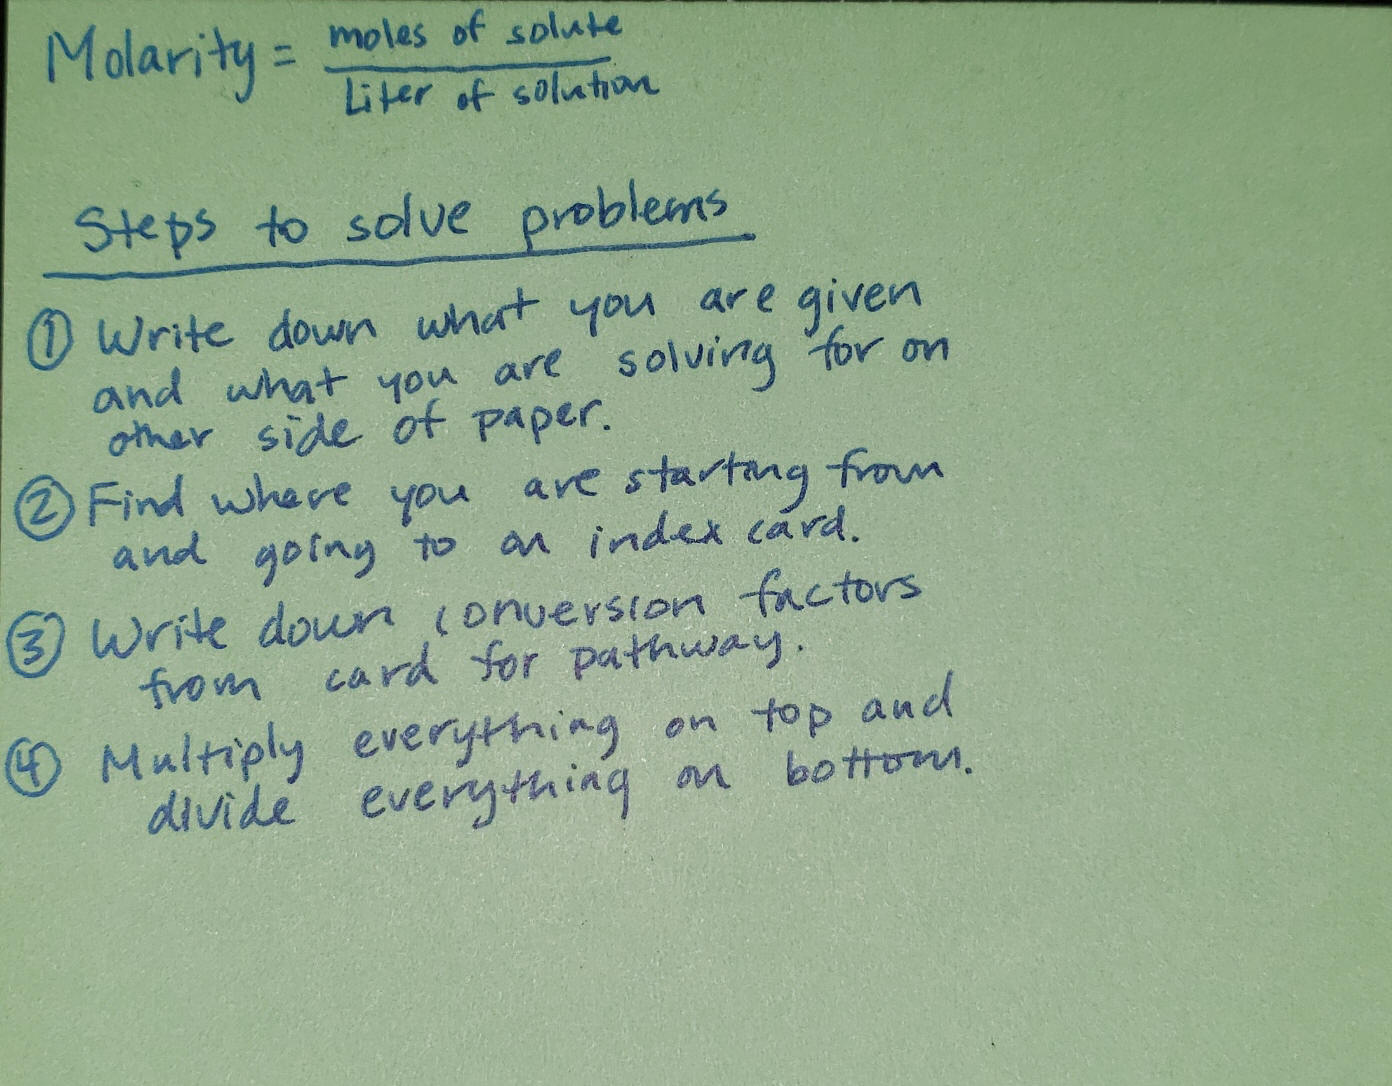 Molarity = moles of solute
Liter of solution
Steps to solve problems
① Write down what you are given
and what you are solving for on
other side of paper.
② Find where you are starting from
and going to on index card.
③ Write down conversion factors
from card for pathway.
④ Multiply everything on top and
divide everything on bottom.